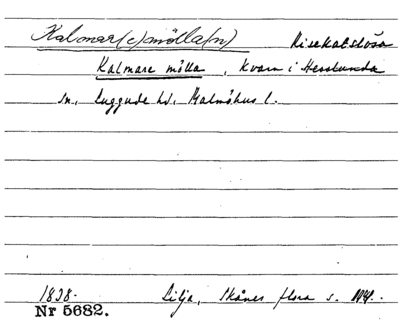 Kalmar(e)mölla(n) Risekatslösa
Kalmare mölla, kvarn i Hesslunda
sn, Luggude hd, Malmöhus l.
1838. Lilja, Skånes flora s.
Nr 5682.